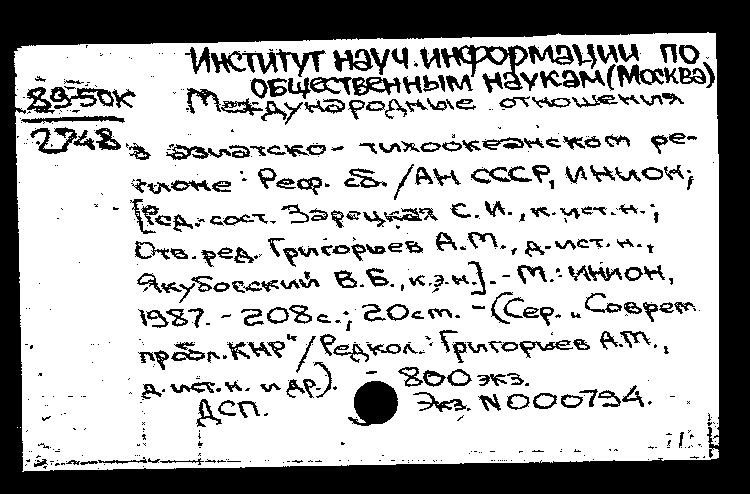 Институт науч. информации по
общественным наукам (Москва)
89-50К
2748
Международные отношения
в азиатско-тихоокеанском ре-
гионе: Реф. сб. / АН СССР, ИНИОН;
[Ред.-сост. Зарецкая С. И., к. ист. н.;
Отв. ред. Григорьев А. М., д. ист. н.,
Якубовский В. Б., к. э. н.]. - М.: ИНИОН,
1987. - 208 с.; 20 см. - (Сер. „Соврем.
пробл. КНР" / Редкол.: Григорьев А. М.,
д. ист. н. и др.). - 800 экз.
ДСП. Экз. N 000794.